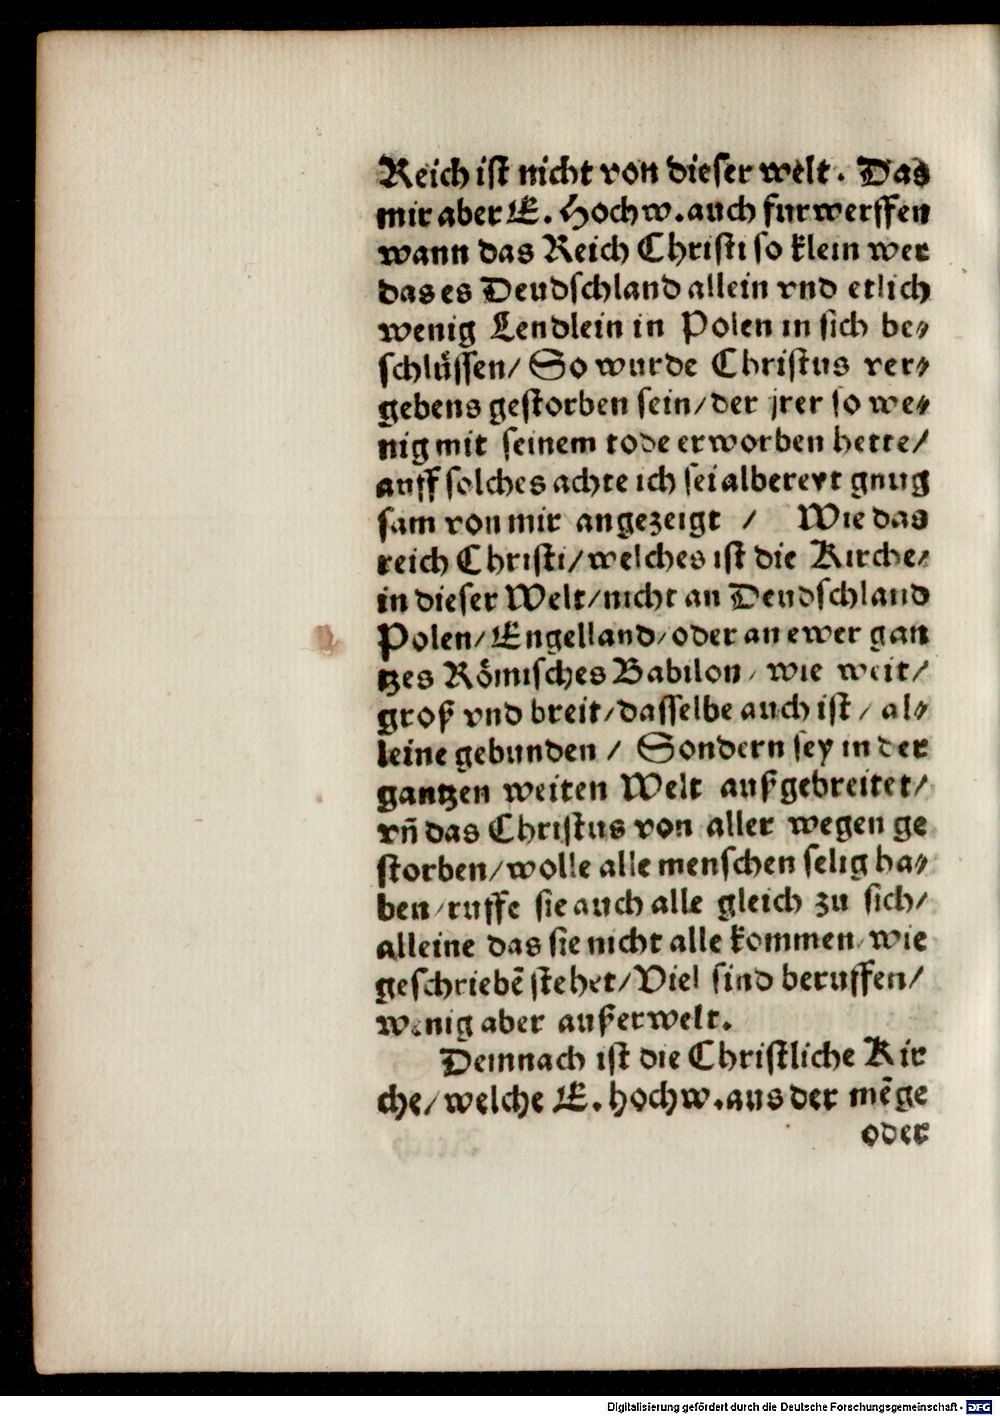 Reich ist nicht von dieser welt. Das
mir aber E. Hochw. auch furwerffen
wann das Reich Christi so klein wer
das es Deudschland allein vnd etlich
wenig Lendlein in Polen in sich be⸗
schlüssen/ So wurde Christus ver⸗
gebens gestorben sein/ der jrer so we⸗
nig mit seinem tode erworben hette/
auff solches achte ich sei albereyt gnug
sam von mir angezeigt / Wie das
reich Christi/ welches ist die Kirche/
in dieser Welt/ nicht an Deudschland
Polen/ Engelland/ oder an ewer gan
tzes Römisches Babilon/ wie weit/
groß vnd breit/ dasselbe auch ist/ al⸗
leine gebunden / Sondern sey in der
gantzen weiten Welt außgebreitet/
vñ das Christus von aller wegen ge
storben/ wolle alle menschen selig ha⸗
ben/ ruffe sie auch alle gleich zu sich/
alleine das sie nicht alle kommen/ wie
geschriebē stehet/ Viel sind beruffen/
wenig aber außerwelt.
Demnach ist die Christliche Kir
che/ welche E. hochw. aus der mēge
oder
Digitalisierung gefördert durch die Deutsche Forschungsgemeinschaft - DFG